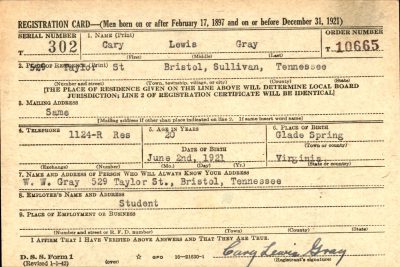 REGISTRATION CARD—(Men born on or after February 17, 1897 and on or before December 31, 1921)
SERIAL NUMBER
1. NAME (Print)
ORDER NUMBER
T 302
Cary Lewis Gray
T 10665
(First) (Middle) (Last)
2. PLACE OF RESIDENCE (Print)
529 Taylor St Bristol, Sullivan, Tennessee
(Number and street) (Town, township, village, or city) (County) (State)
[THE PLACE OF RESIDENCE GIVEN ON THE LINE ABOVE WILL DETERMINE LOCAL BOARD
JURISDICTION; LINE 2 OF REGISTRATION CERTIFICATE WILL BE IDENTICAL]
3. MAILING ADDRESS
Same
[Mailing address if other than place indicated on line 2. If same insert word same]
4. TELEPHONE
5. AGE IN YEARS
6. PLACE OF BIRTH
1124-R Res
20
Glade Spring
DATE OF BIRTH
(Town or county)
June 2nd, 1921
Virginia
(Exchange) (Number)
(Mo.) (Day) (Yr.)
(State or country)
7. NAME AND ADDRESS OF PERSON WHO WILL ALWAYS KNOW YOUR ADDRESS
W. W. Gray 529 Taylor St., Bristol, Tennessee
8. EMPLOYER'S NAME AND ADDRESS
Student
9. PLACE OF EMPLOYMENT OR BUSINESS
(Number and street or R. F. D. number) (Town) (County) (State)
I AFFIRM THAT I HAVE VERIFIED ABOVE ANSWERS AND THAT THEY ARE TRUE.
D. S. S. Form 1
(Revised 1-1-42)
GPO 16—21630-1
Cary Lewis Gray
(Registrant's signature)